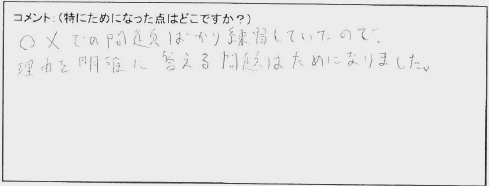 コメント:(特にためになった点はどこですか?)
○×での問題ばかり練習していたので、
理由を明確に答える問題はためになりました。